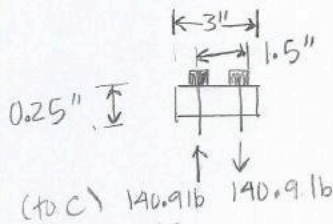 3"
1.5"
0.25"
(to C) 140.9 lb 140.9 lb